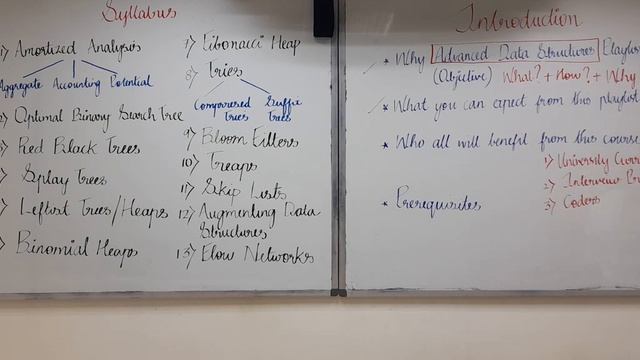 Syllabus
1) Amortized Analysis
Aggregate Accounting Potential
2) Optimal Binary Search Tree
3) Red Black Trees
) Splay Trees
) Leftist Trees/Heaps
) Binomial Heaps
7) Fibonacci Heap
8) Tries
Compressed Tries
Suffix Trees
9) Bloom Filters
10) Treaps
11) Skip Lists
12) Augmenting Data
Structures
13) Flow Networks
Introduction
* Why Advanced Data Structures
(Objective) What? + How? + Why
* What you can expect from this playlist
* Who all will benefit from this course
1) University
2) Interview
3) Coders
* Prerequisites